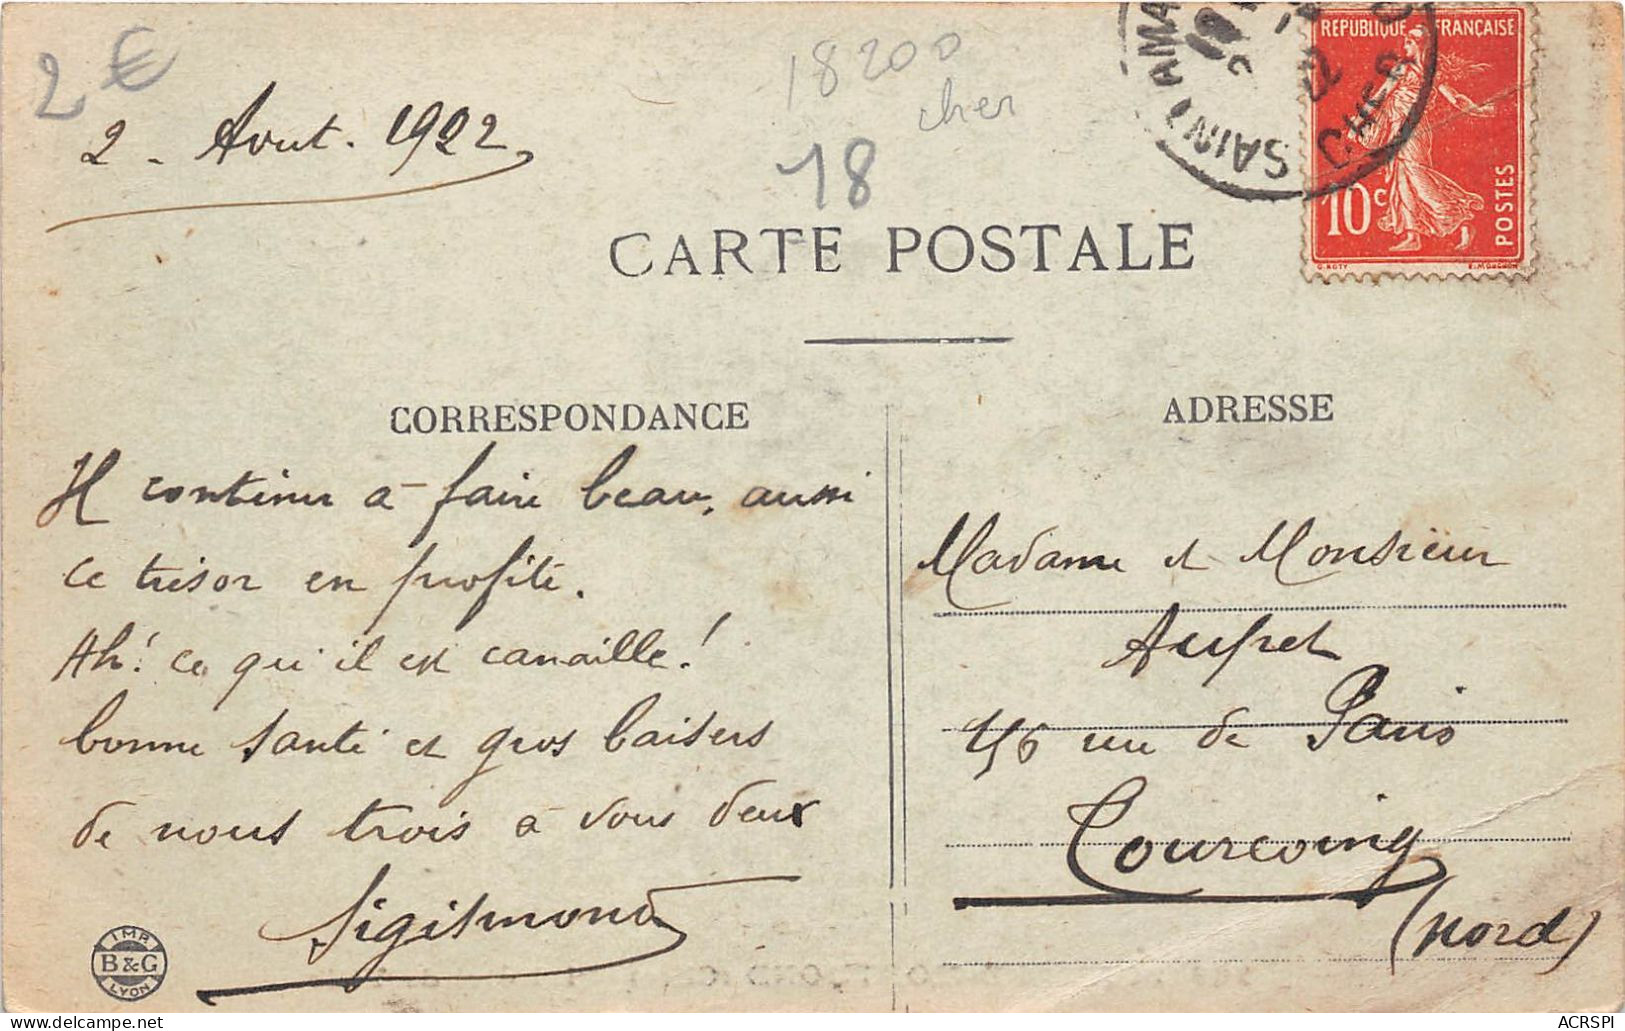 2 €
18200
cher
18
2 - Aout. 1922
SAINT AMA
CHER
RÉPUBLIQUE FRANÇAISE
10 c
POSTES
O. ROTY E. MOUCHON
CARTE POSTALE
CORRESPONDANCE
Il continue à faire beau, aussi
ce trésor en profite.
Ah! ce qu'il est canaille!
bonne santé et gros baisers
de nous trois à vous deux
Sigismond
ADRESSE
Madame et Monsieur
Aufret
156 rue de Paris
Tourcoing
(Nord)
IMP.
B & G
LYON
ACRSPI